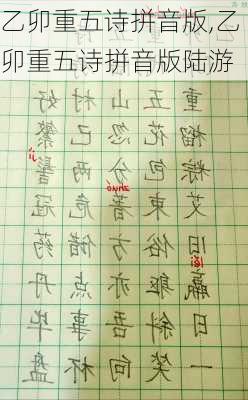 乙卯重五诗拼音版,乙
卯重五诗拼音版陆游
重五山村好
榴花忽已繁
粽包分两髻
jì
艾束著危冠
zhuo
旧俗方储药
léi
羸躯亦点丹
日斜吾事毕
一笑向杯盘